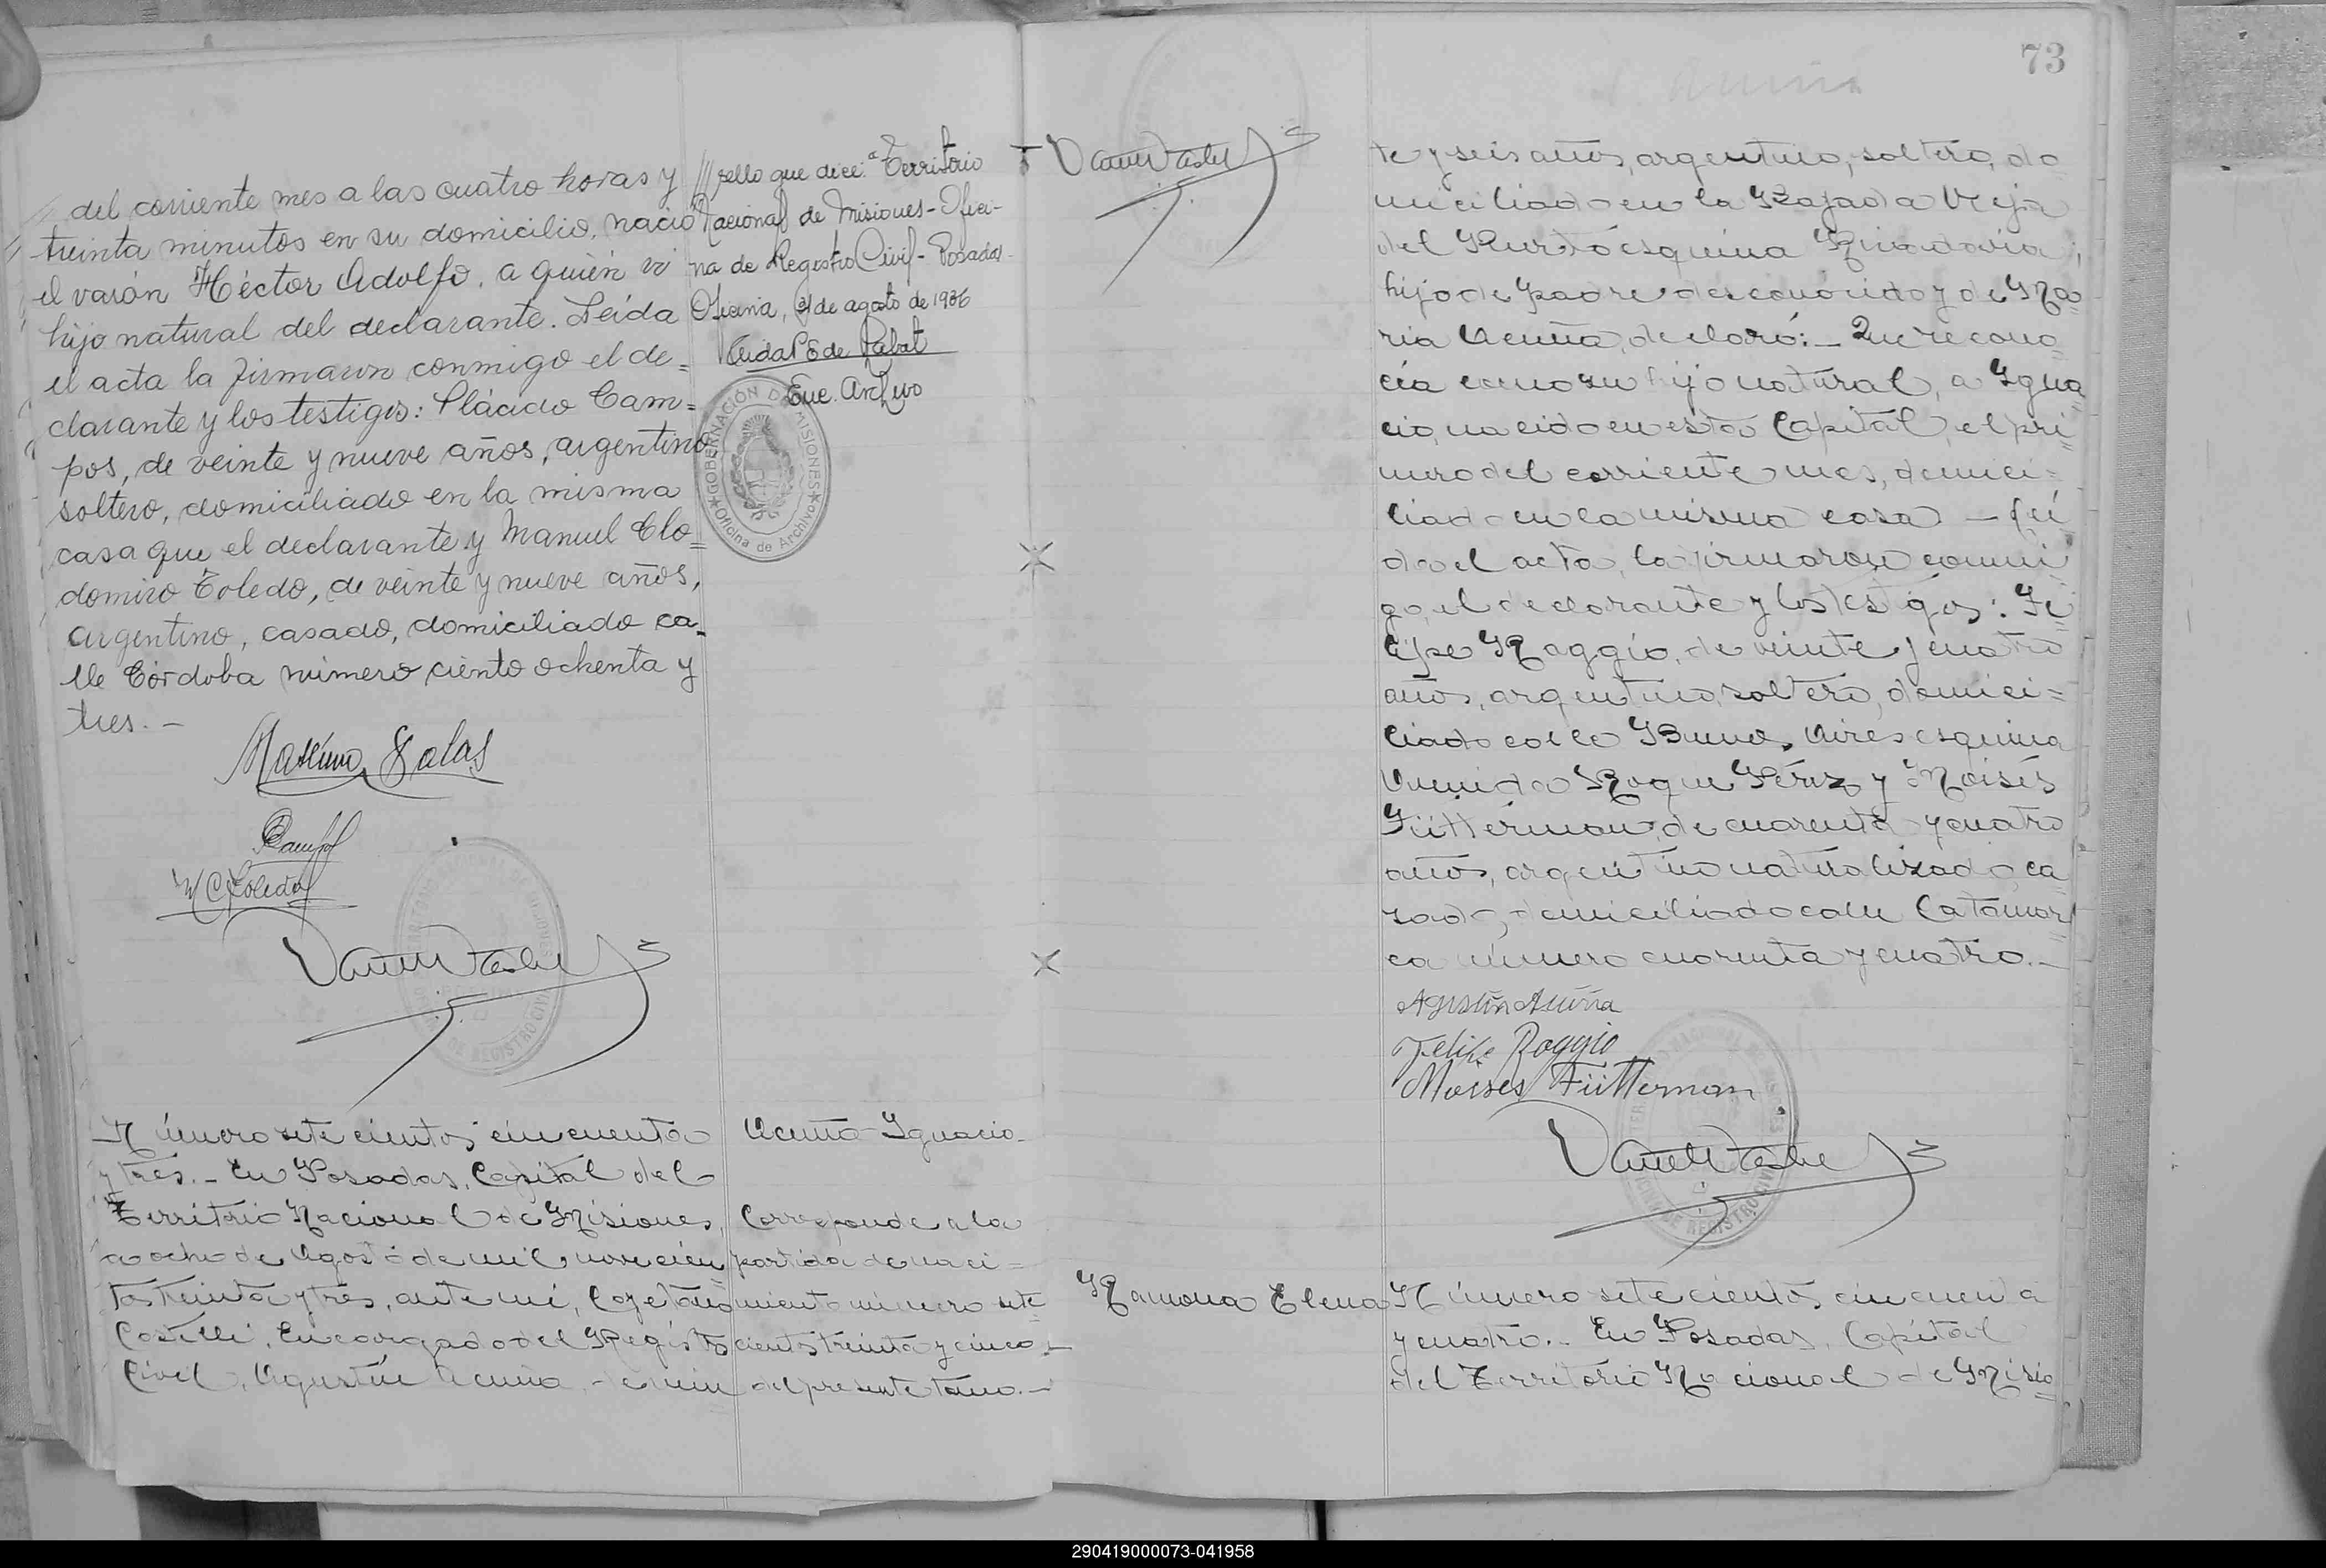 del corriente mes a las cuatro horas y
treinta minutos en su domicilio, nació
el varón Héctor Adolfo, a quién vi
hijo natural del declarante. Leída
el acta la firmaron conmigo el de=
clarante y los testigos: Plácido Cam=
pos, de veinte y nueve años, argentino
soltero, domiciliado en la misma
casa que el declarante y Manuel Clo=
domiro Toledo, de veinte y nueve años,
argentino, casado, domiciliado ca=
lle Córdoba número ciento ochenta y
tres.-
Máximo Salas
M C Toledo
/// sello que dice: "Territorio
Nacional de Misiones - Ofici-
na de Registro Civil - Posadas-
Oficina, 31 de agosto de 1936
Enc. Archivo
GOBERNACIÓN DE MISIONES
Oficina de Archivo
Número setecientos cincuenta
y tres.- En Posadas, Capital del
Territorio Nacional de Misiones,
a ocho de Agosto de mil novecien
tos treinta y tres, ante mi, Cayetano
Castelli, Encargado del Registro
Civil, Agustín Acuña, de vein
Acuña Ignacio-
Corresponde a la
partida de naci=
miento número sete
cientos treinta y cinco
del presente tomo.-
73
te y seis años, argentino, soltero, do
miciliado en la Bajada Vieja
del Puerto esquina Rivadavia,
hijo de padre desconocido y de Ma
ria Acuña, declaró:- Que recono=
cía como su hijo natural, a Igna
cio, nacido en esta Capital, el pri=
mero del corriente mes, domici=
liado en la misma casa - Leí
da el acta, la firmaron conmi=
go, el declarante y los testigos: Fe=
lipe Raggio, de veinte y cuatro
años, argentino, soltero, domici=
liado calle Buenos Aires esquina
Avenida Roque Pérez y Moisés
Fütterman, de cuarenta y cuatro
años, argentino naturalizado, ca
sado, domiciliado calle Catamar=
ca número cuarenta y cuatro.-
Agustín Acuña
Felipe Raggio
Moises Fütterman
Ramona Elena
Número setecientos cincuenta
y cuatro.- En Posadas, Capital
del Territorio Nacional de Misio=
290419000073-041958